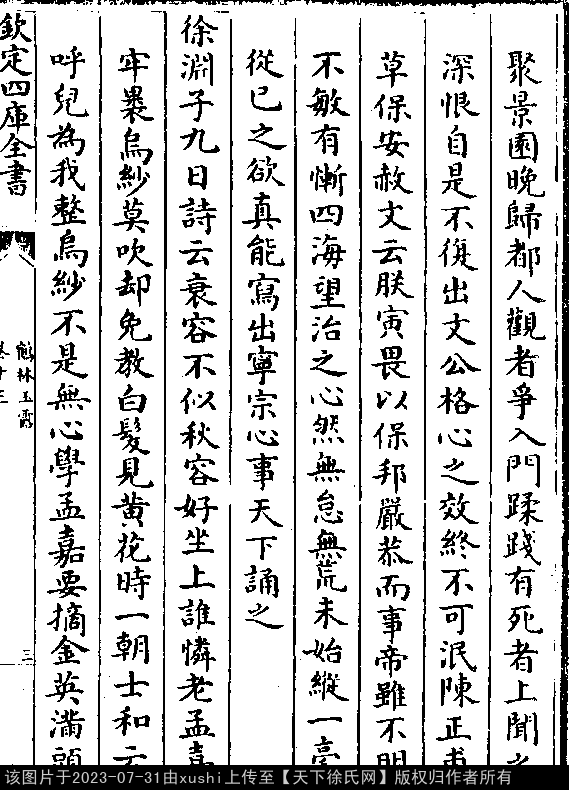 聚景園晚歸都人觀者爭入門蹂踐有死者上聞之
深恨自是不復出文公格心之效終不可泯陳正甫
草保安赦文云朕寅畏以保邦嚴恭而事帝雖不明
不敏有慚四海望治之心然無怠無荒未始縱一毫
從已之欲真能寫出寧宗心事天下誦之
徐淵子九日詩云衰容不似秋容好坐上誰憐老孟嘉
牢裹烏紗莫吹却免教白髮見黄花時一朝士和云
呼兒為我整烏紗不是無心學孟嘉要摘金英滿頭
欽定四庫全書
鶴林玉露
卷十三
三
该图片于2023-07-31由xushi上传至【天下徐氏网】版权归作者所有